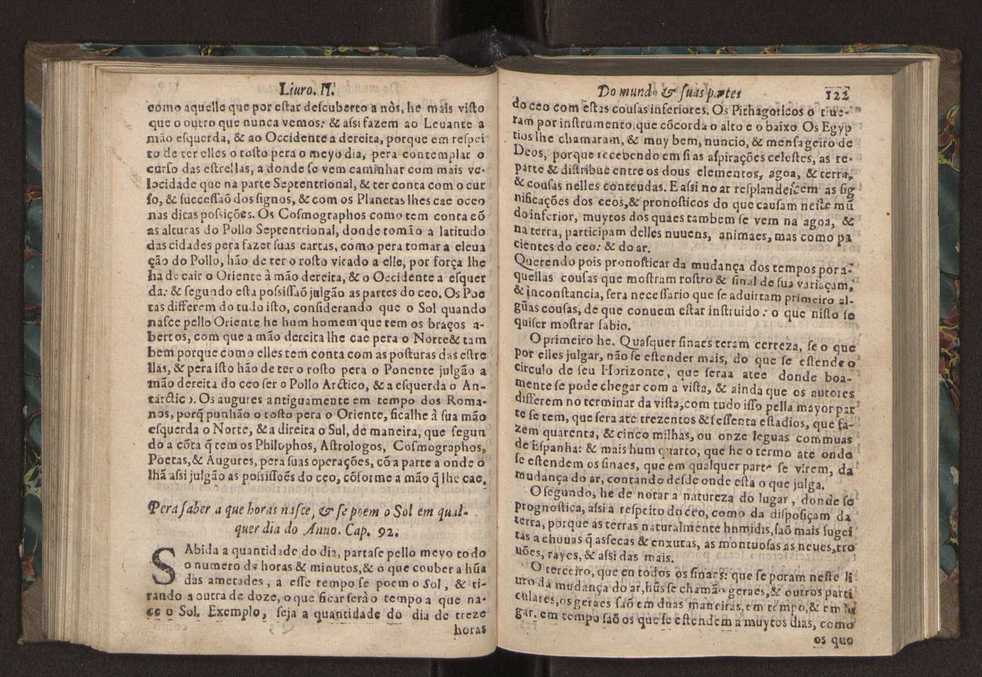 Liuro. II.
como aquelle que por estar descuberto a nòs, he mais visto
que o outro que nunca vemos: & assi fazem ao Leuante a
mão esquerda, & ao Occidente a dereita, porque em respei
to de ter elles o rosto pera o meyo dia, pera contemplar o
curso das estrellas, a donde se vem caminhar com mais ve-
locidade que na parte Septentrional, & ter conta com o cur
so, & successaõ dos signos, & com os Planetas lhes cae oceo
nas ditas possições. Os Cosmographos como tem conta cõ
as alturas do Pollo Septentrional, donde tomão a latitudo
das cidades pera fazer suas cartas, como pera tomar a eleua
ção do Pollo, hão de ter o rosto virado a elle, por força lhe
ha de cair o Oriente à mão dereita, & o Occidente a esquer
da: & segundo esta possissaõ julgão as partes do ceo. Os Poe
tas differem do tudo isto, considerando que o Sol quando
nasce pello Oriente he hum homem que tem os braços a-
bertos, com que a mão dereita lhe cae pera o Norte & tam
bem porque como elles tem conta com as posturas das estre
llas, & pera isto hão de ter o rosto pera o Ponente julgão a
mão dereita do ceo ser o Pollo Arctico, & a esquerda o An-
tarctico. Os augures antiguamente em tempo dos Roma-
nos, porq̃ punhão o rosto pera o Oriente, ficalhe à sua mão
esquerda o Norte, & a direita o Sul, de maneira, que segun
do a cõta q̃ tem os Philophos, Astrologos, Cosmographos,
Poetas, & Augures, pera suas operações, cõ a parte a onde o
lhã assi julgão as poisissões do ceo, cõforme a mão q̃ lhe cae.
Pera saber a que horas nasce, & se poem o Sol em qual-
quer dia do Anno. Cap. 92.
SAbida a quantidade do dia, partase pello meyo todo
o numero de horas & minutos, & o que couber a hũa
das ametades, a esse tempo se poem o Sol, & ti-
rando a outra de doze, o que ficar serão tempo a que na-
ce o Sol. Exemplo, seja a quantidade do dia de treze
horas
Do mundo & suas partes 122
do ceo com estas cousas inferiores. Os Pithagoricos o tiue-
ram por instrumento, que cõcorda o alto e o baixo. Os Egyp
tios lhe chamaram, & muy bem, nuncio, & mensageiro de
Deos, porque recebendo em si as aspirações celestes, as re-
parte & distribue entre os dous elementos, agoa, & terra,
& cousas nelles contendas. E assi no ar resplandescem as sig
nificações dos ceos, & pronosticos do que causam neste mũ
do inferior, muytos dos quaes tambem se vem na agoa, &
na terra, participam delles nuuens, animaes, mas como pa
cientes do ceo: & do ar.
Querendo pois pronosticar da mudança dos tempos por a-
quellas cousas que mostram rostro & sinal de sua variaçam,
& inconstancia, sera necessario que se aduirtam primeiro al-
gũas cousas, de que conuem estar instruido: o que nisto se
quiser mostrar sabio.
O primeiro he. Quasquer sinaes teram certeza, se o que
por elles julgar, não se estender mais, do que se estende o
circulo de seu Horizonte, que seraa atee donde boa-
mente se pode chegar com a vista, & ainda que os autores
differem no terminar da vista, com tudo isso pella mayor par
te se tem, que sera ate trezentos & sessenta estadios, que fa-
zem quarenta, & cinco milhas, ou onze leguas communas
de Espanha: & mais hum quarto, que he o termo ate onde
se estendem os sinaes, que em qualquer parte se virem, da
mudança do ar, contando desde onde esta o que julga.
O segundo, he de notar a natureza do lugar, donde se
prognostica, assi a respeito do ceo, como da disposiçam da
terra, porque as terras naturalmente humidis, saõ mais sugei
tas a chouas q̃ assecas & enxutas, as montuosas as neues, tro
uões, rayes, & assi das mais.
O terceiro, que en todos os sinaes: que se poram neste li
uro da mudança do ar, hũs se chamão geraes, & outros parti
culares, os geraes saõ em duas maneiras, em tempo, & em lu
gar. em tempo saõ os que se estendem a muytos dias, como
os quo